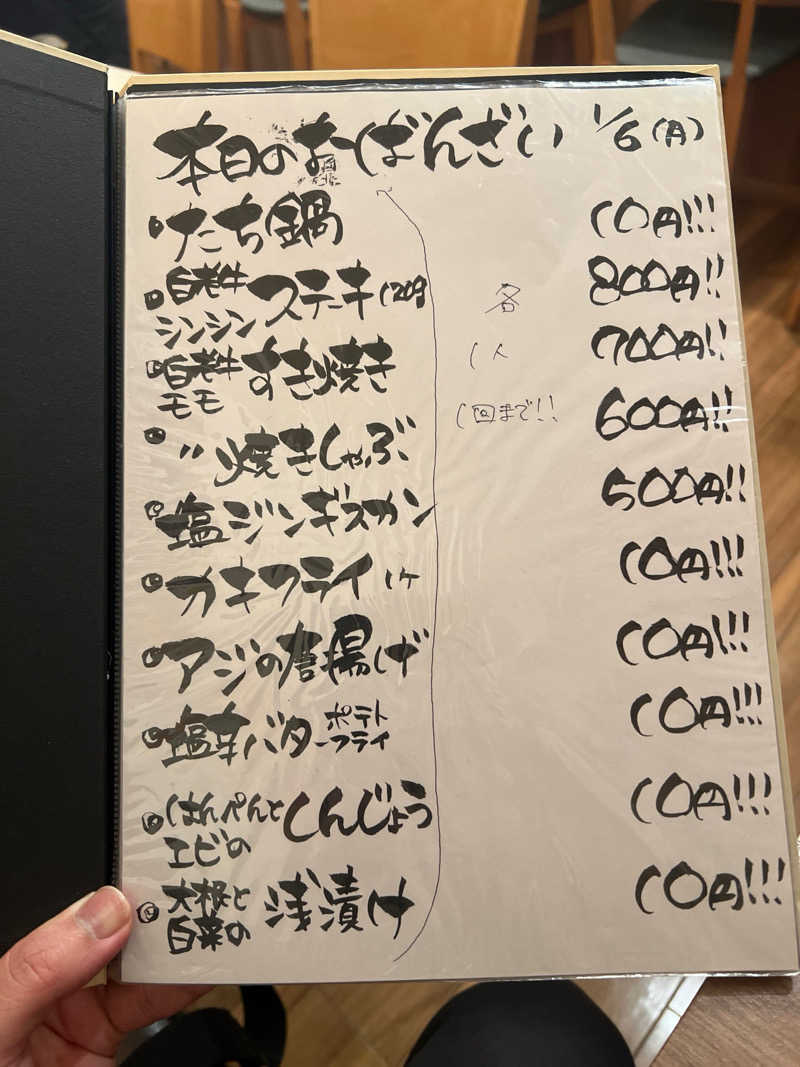 本日のおばんざい 1/6(月)
・たち鍋 10円!!!
・白老牛シンシンステーキ120g 800円!!
・白老牛モモすき焼き 700円!!
・〃焼きしゃぶ 600円!!
・塩ジンギスカン 500円!!
・カキフライ1ケ 10円!!!
・アジの唐揚げ 10円!!!
・塩辛バターポテトフライ 10円!!!
・はんぺんとエビのしんじょう 10円!!!
・大根と白菜の浅漬け 10円!!!
各
1人
1回まで!!